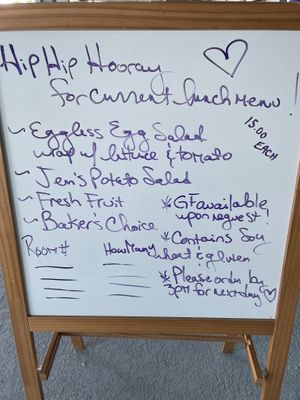 Hip Hip Hooray
for current lunch menu!
15.00 EACH
~ Eggless Egg Salad
wrap w/ lettuce & tomato
~ Jen's Potato Salad
~ Fresh Fruit
~ Baker's Choice
* GF available
upon request!
* Contains Soy
wheat & gluten
* Please order by
3PM for next day
Room # How Many